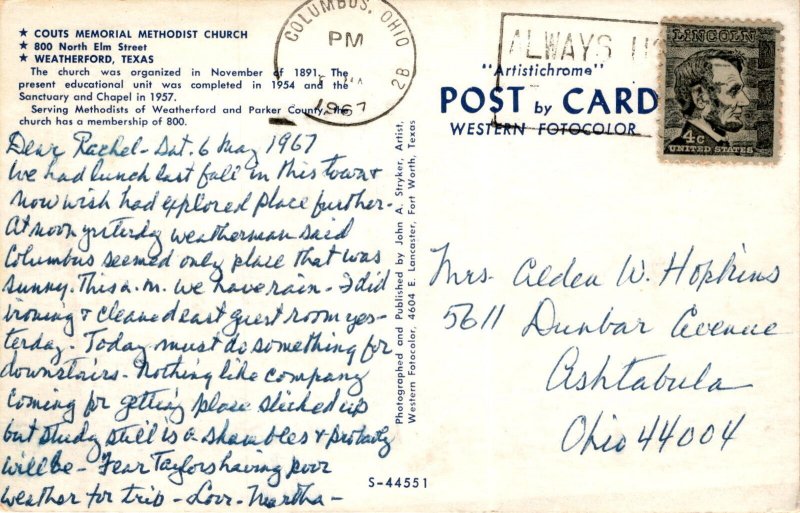 ★ COUTS MEMORIAL METHODIST CHURCH
★ 800 North Elm Street
★ WEATHERFORD, TEXAS
The church was organized in November of 1891. The
present educational unit was completed in 1954 and the
Sanctuary and Chapel in 1957.
Serving Methodists of Weatherford and Parker County, the
church has a membership of 800.
Dear Rachel - Sat. 6 May 1967
We had lunch last fall in this town &
now wish had explored place further -
At noon yesterday weatherman said
Columbus seemed only place that was
sunny. This a.m. we have rain - I did
ironing & cleaned east guest room yes-
terday. Today must do something for
downstairs - Nothing like company
coming for getting place slicked up
but study still is a shambles & probably
will be - Fear Taylors having poor
weather for trip - Love - Martha -
COLUMBUS, OHIO
PM
1967
2B
ALWAYS
LINCOLN
4c
UNITED STATES
"Artistichrome"
POST by CARD
WESTERN FOTOCOLOR
Photographed and Published by John A. Stryker, Artist,
Western Fotocolor, 4604 E. Lancaster, Fort Worth, Texas
Mrs. Alden W. Hopkins
5611 Dunbar Avenue
Ashtabula
Ohio 44004
S-44551